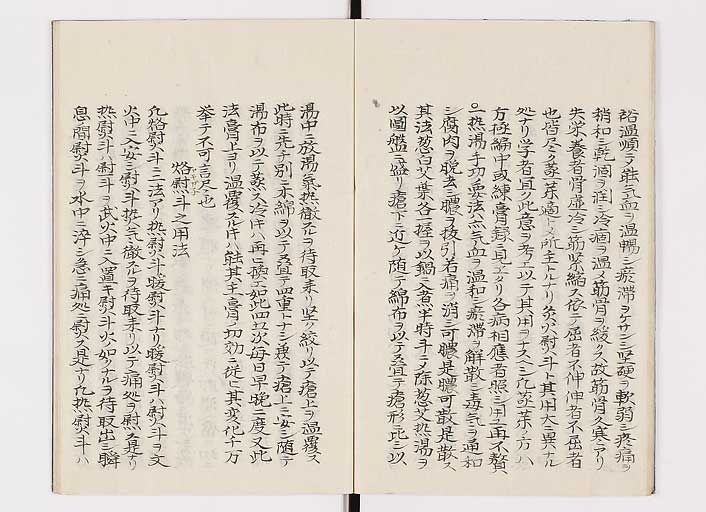 裕温煩ヲ能気血ヲ温暢シ瘀滞ヲケサンシ堅硬ヲ軟弱シ疼痛ヲ
稍和シ乾涸ヲ潤シ冷痼ヲ温メ筋骨ヲ緩クス故筋骨久寒アリ
失栄養者骨虚冷シ筋緊縮ス依テ屈者不伸伸者不屈者
也皆尽ク蒸薬適トメ所主トルナリ灸火慰斗ト其用大ニ異ナル
処ナリ学者宜ク此意ヲ考エ以テ其用ヲナスベシ凡蒸薬ノ方ハ
方極編中或練膏録ニ見エタリ各病相應者照シ用ユ再不贅、
一熱湯手功ノ要法亦気血ヲ温和シ瘀滞ヲ解散シ毒気ヲ通和
シ腐肉ヲ脱去シ膿ヲ抜引若痛ヲ消シ可膿是膿可散是散ス
其法葱白艾葉各一握ヲ以鍋ニ入煮半時斗ニメ除葱艾熱湯ヲ
以國盤ニ盛リ瘡下ニ近ケ随テ綿布ヲ以テ五宜テ瘡形ニ応シ以
湯中ニ放湯気熱徹スルヲ待取来リ堅ク絞リ以テ瘡上ヲ温覆ス
此時ニ先チ別ニ木綿ヲ以テ五宜テ四重ナシ瘡上ニ安シ随テ
湯布ヲ以テ蒸ス冷ルキハ再ニ替エ如此四五次毎日早晩ニ度又此
法膏上ヨリ温覆スルキハ能其主膏ノ功効ニ従ヒ其変化千万
挙テ不可言尽也
烙慰斗之用法
凡烙慰斗ニ二法アリ熱慰斗暖慰斗ナリ暖慰斗ハ慰斗ヲ文
火中ニ入安シ慰斗熱気ニ徹スルヲ待取来リ以テ痛処ヲ慰ス是ナリ
熱慰斗ハ慰斗ヲ武火中ニ入置キ慰斗火如ナルヲ待取出シ瞬
息間慰斗ヲ水中ニ淬シ急ニ痛処ニ慰ス是ナリ凡熱慰斗ハ